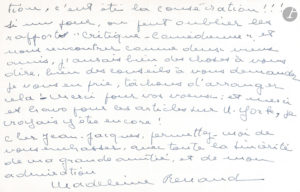 tion, c'est été la conservation!!!
si un jour, on peut oublier les
rapports "Critique-Comédienne", et
nous rencontrer comme deux vieux
amis, j'aurais bien des choses à vous
dire, bien des conseils à vous demander
je vous en prie, tâchons d'arranger
cela
et bravo pour les articles sur N. York, je
croyais y être encore!
cher Jean-Jacques, permettez moi de
vous embrasser, avec toute la sincérité
de ma grande amitié, et de mon
admiration
Madeleine Renaud